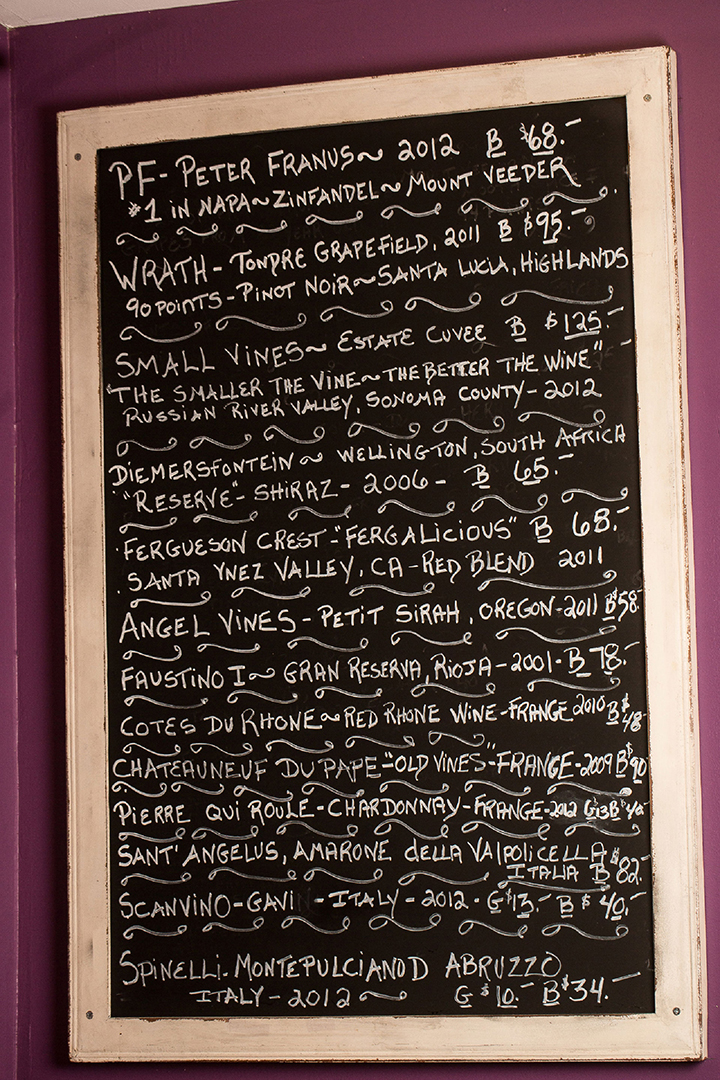 PF- PETER FRANUS~ 2012 B $68.-
#1 IN NAPA~ZINFANDEL~MOUNT VEEDER
WRATH- TONDRE GRAPEFIELD, 2011 B $95.-
90 POINTS-PINOT NOIR~SANTA LUCIA, HIGHLANDS
SMALL VINES~ ESTATE CUVEE B $125.-
"THE SMALLER THE VINE~THE BETTER THE WINE"
RUSSIAN RIVER VALLEY, SONOMA COUNTY-2012
DIEMERSFONTEIN~ WELLINGTON, SOUTH AFRICA
"RESERVE"- SHIRAZ- 2006- B 65.-
FERGUESON CREST-"FERGALICIOUS" B 68.-
SANTA YNEZ VALLEY, CA-RED BLEND 2011
ANGEL VINES-PETIT SIRAH, OREGON-2011 B $58.
FAUSTINO I~ GRAN RESERVA, RIOJA-2001-B 78.-
COTES DU RHONE~RED RHONE WINE-FRANGE 2010 B $48-
CHATEAUNEUF DU PAPE-"OLD VINES"-FRANGE-2009 B $90
PIERRE QUI ROULE-CHARDONNAY-FRANGE-2012 G 13 B $40-
SANT'ANGELUS, AMARONE della VAlpoliCELLA
ITALIA B $82.-
SCANVINO-GAVI-ITALY-2012. G $13.- B $40.-
SPINELLI. MONTEPULCIANO D ABRUZZO
ITALY-2012~ G $10.- B $34.-